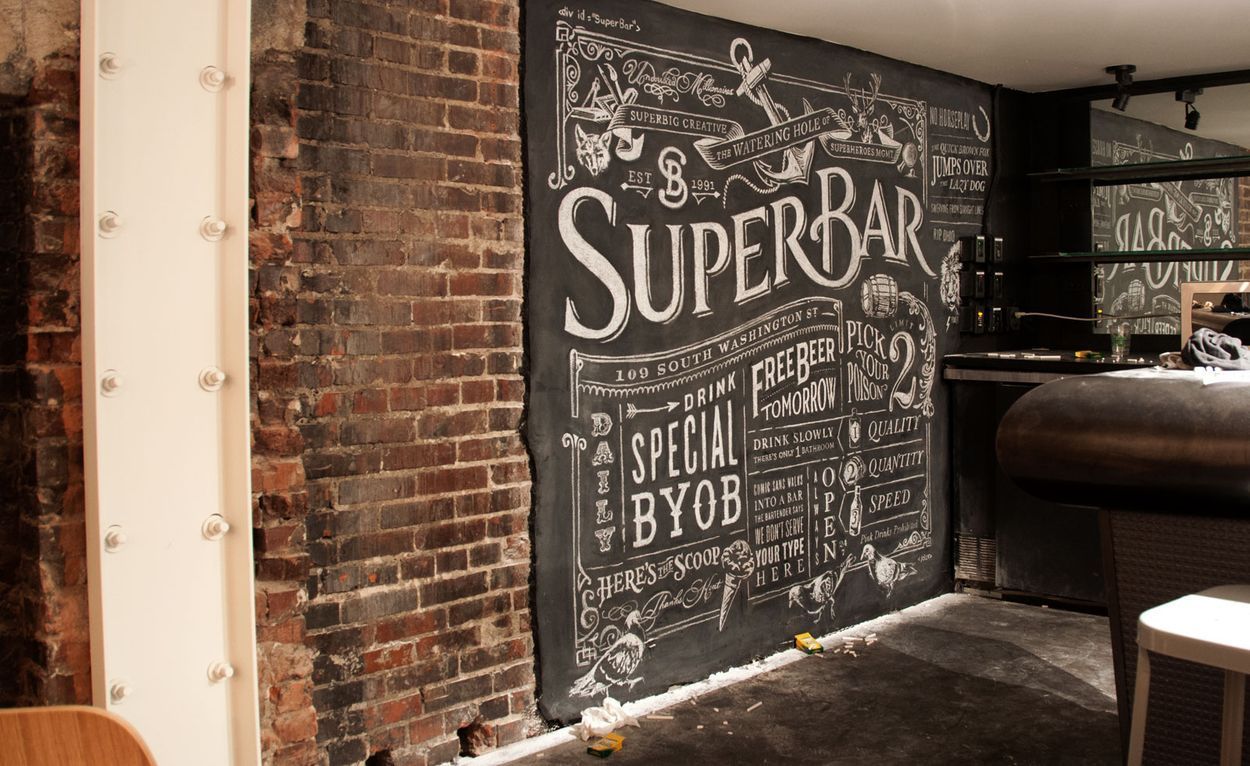 <div id="SuperBar">
Undoubted Millionaires
SUPERBIG CREATIVE
THE WATERING HOLE OF
SUPERHEROES MGMT.
EST SB 1991
SUPERBAR
109 SOUTH WASHINGTON ST
DAILY
DRINK
SPECIAL
BYOB
FREE BEER
TOMORROW
DRINK SLOWLY
THERE'S ONLY 1 BATHROOM
COMIC SANS WALKS
INTO A BAR
THE BARTENDER SAYS
WE DON'T SERVE
YOUR TYPE
HERE
ALWAYS
OPEN
PICK
YOUR
POISON
LIMIT
2
QUALITY
QUANTITY
SPEED
Pink Drinks Prohibited
HERE'S THE SCOOP
Thanks Kent
NO HORSEPLAY
THE QUICK BROWN FOX
JUMPS OVER
THE LAZY DOG
RIP OHNO
SUPERBAR